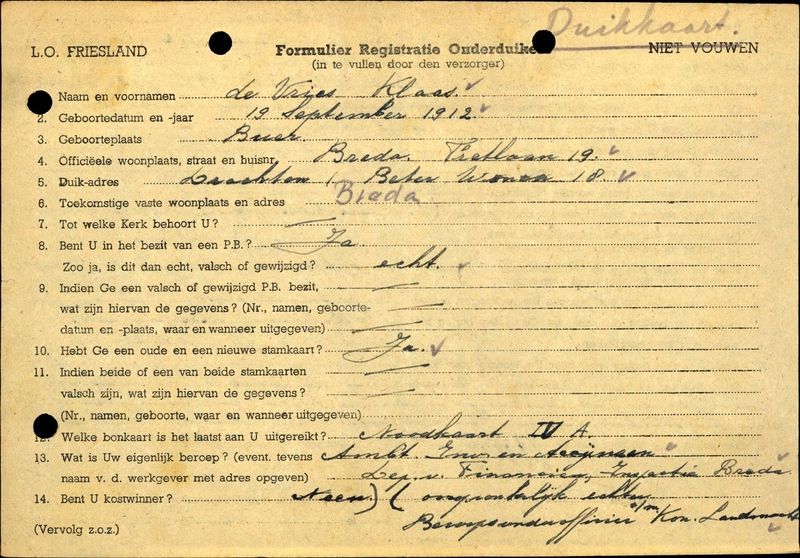 Duikkaart.
L.O. FRIESLAND Formulier Registratie Onderduike NIET VOUWEN
(in te vullen door den verzorger)
Naam en voornamen de Vries Klaas
2. Geboortedatum en -jaar 19 September 1912
3. Geboorteplaats Buer
4. Officiëele woonplaats, straat en huisnr. Breda.
19.
5. Duik-adres Drachten, Beter Wonen 18.
6. Toekomstige vaste woonplaats en adres Breda
7. Tot welke Kerk behoort U?
8. Bent U in het bezit van een P.B.? Ja
Zoo ja, is dit dan echt, valsch of gewijzigd? echt.
9. Indien Ge een valsch of gewijzigd P.B. bezit,
wat zijn hiervan de gegevens? (Nr., namen, geboorte-
datum en -plaats, waar en wanneer uitgegeven)
10. Hebt Ge een oude en een nieuwe stamkaart? Ja.
11. Indien beide of een van beide stamkaarten
valsch zijn, wat zijn hiervan de gegevens?
(Nr., namen, geboorte, waar en wanneer uitgegeven)
12. Welke bonkaart is het laatst aan U uitgereikt? Noodkaart IV A.
13. Wat is Uw eigenlijk beroep? (event. tevens Ambt. Inv. en Accijnzen
naam v. d. werkgever met adres opgeven) Dep. v. Financien, Inspectie Breda
14. Bent U kostwinner? Neen) (oorspronkelijk echter
Beroepsonderofficier Kon. Landmacht
(Vervolg z.o.z.)